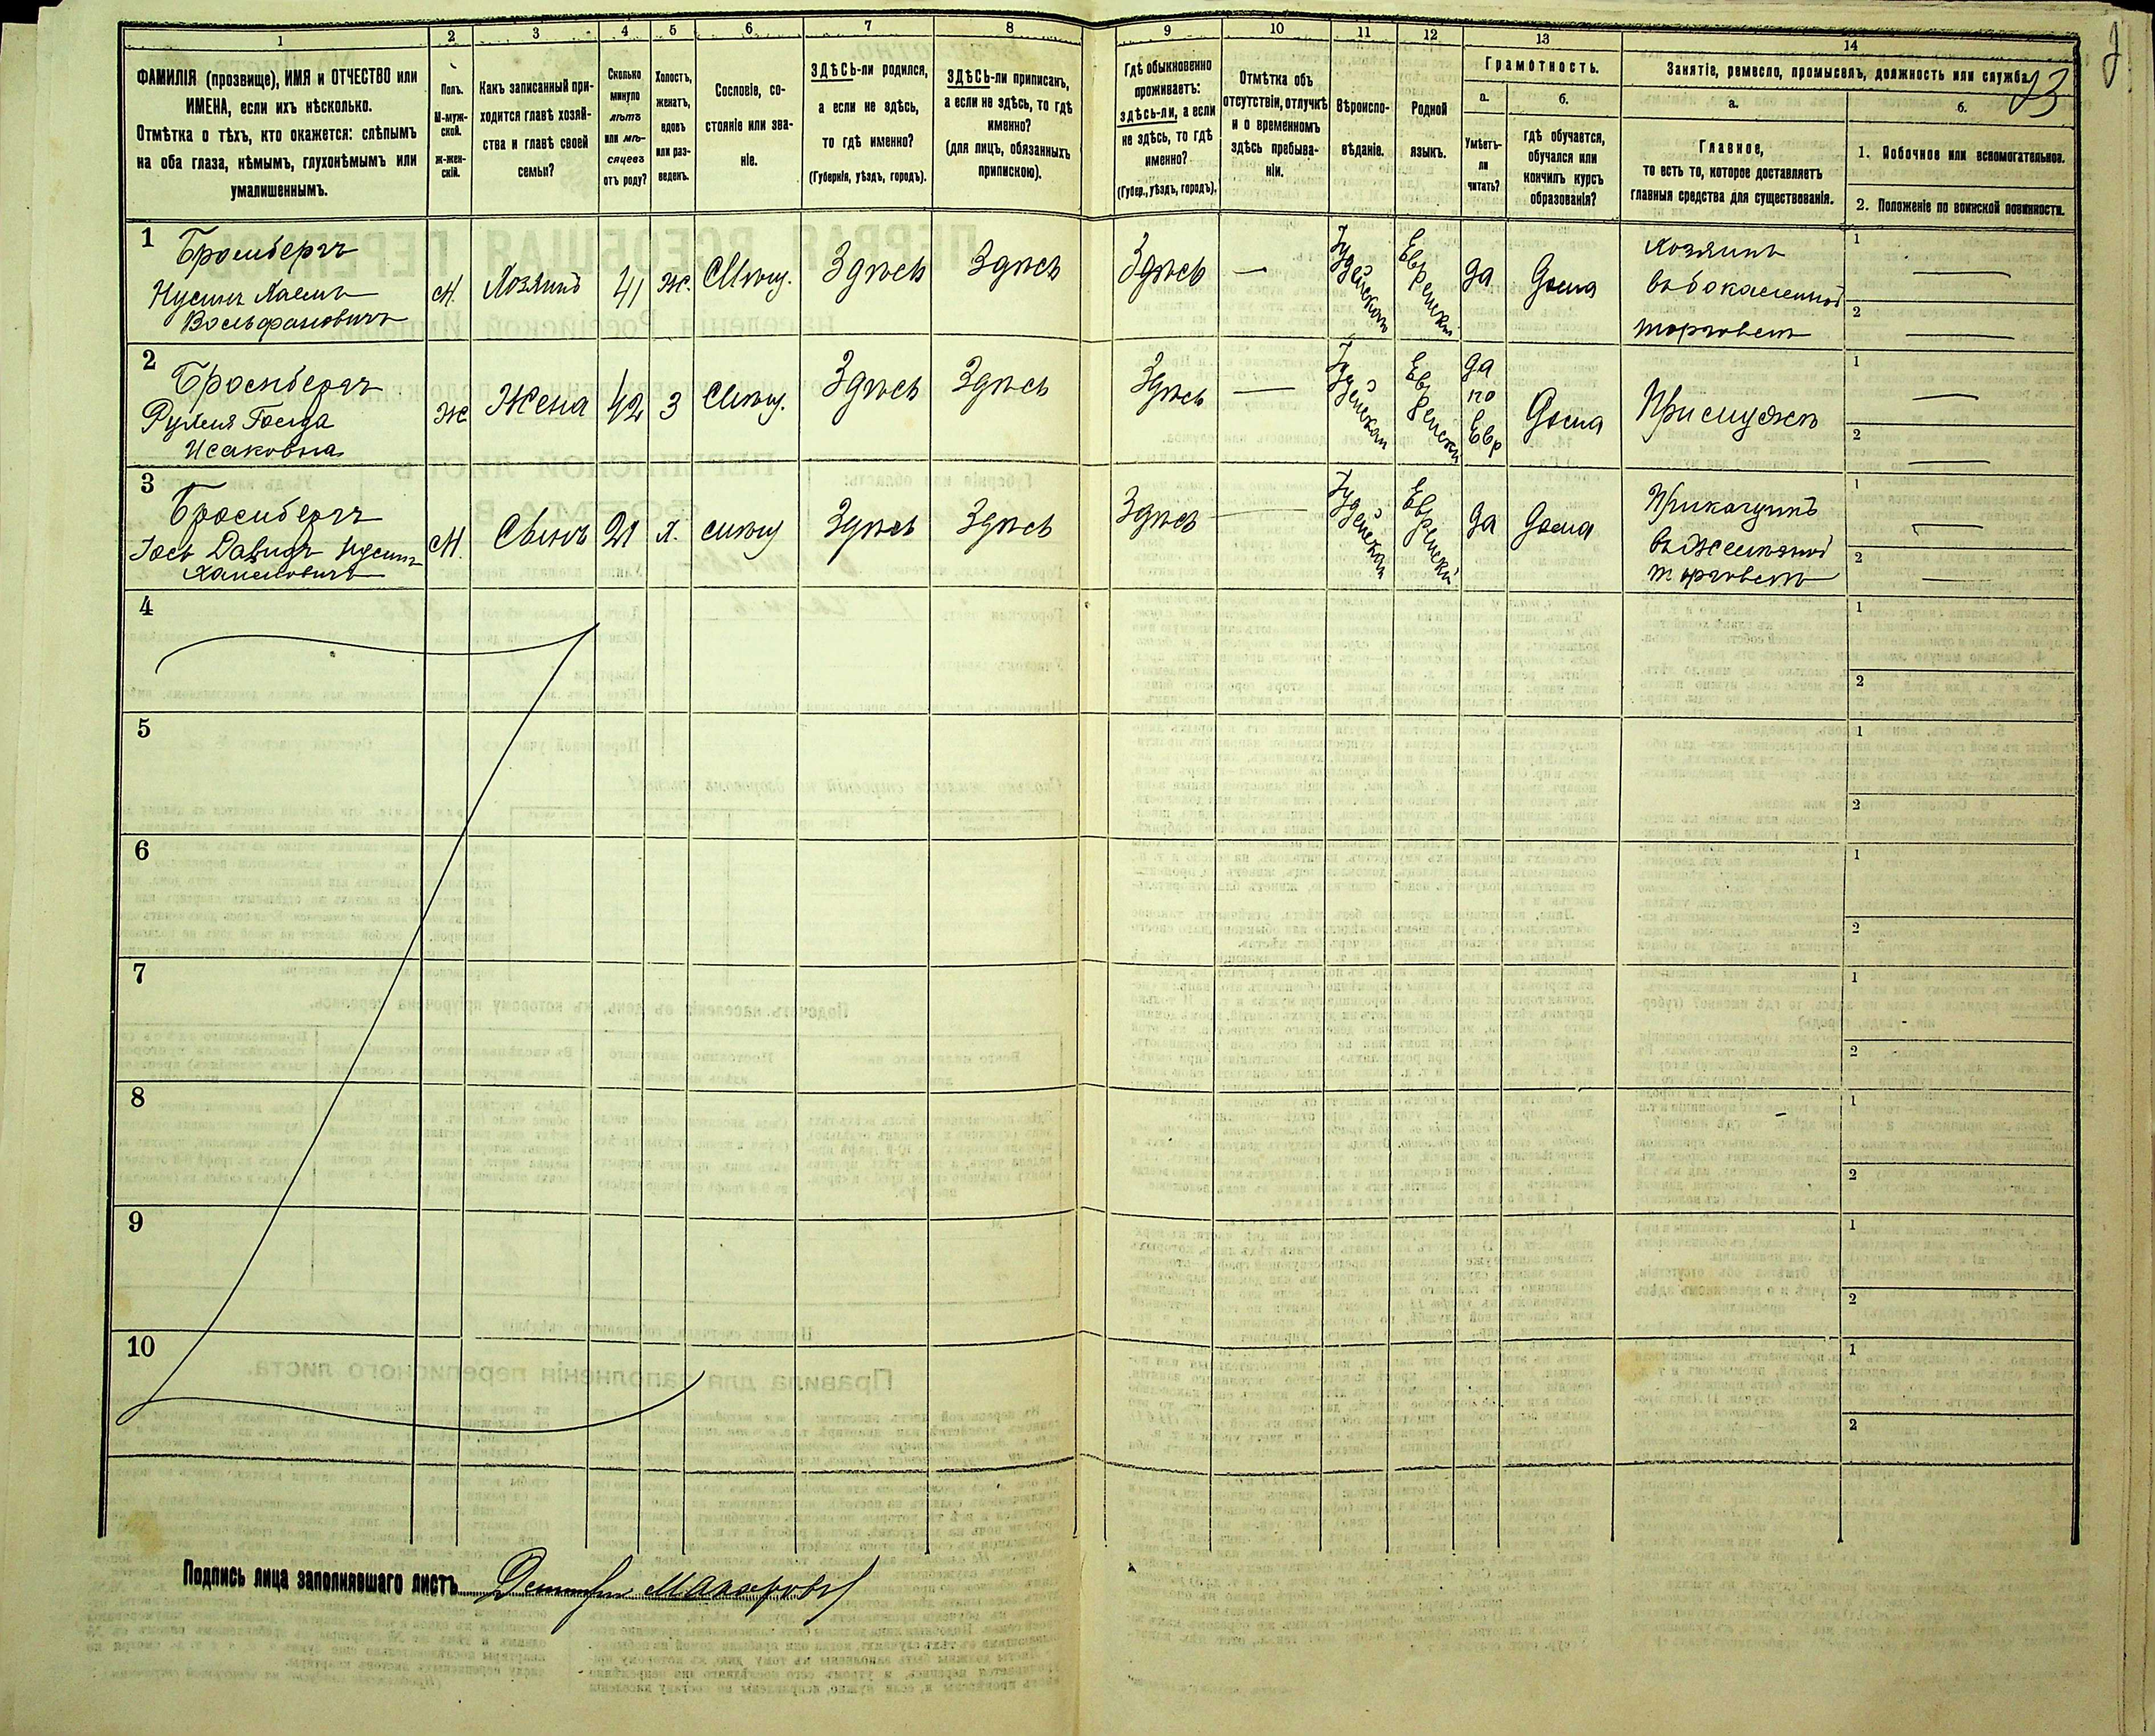 1 2 3 4 5 6 7 8 9 10 11 12 13 14
ФАМИЛІЯ (прозвище), ИМЯ и ОТЧЕСТВО или
ИМЕНА, если ихъ нѣсколько.
Отмѣтка о тѣхъ, кто окажется: слѣпымъ
на оба глаза, нѣмымъ, глухонѣмымъ или
умалишеннымъ.
Полъ.
М-муж-
ской.
ж-жен-
скій.
Какъ записанный при-
ходится главѣ хозяй-
ства и главѣ своей
семьи?
Сколько
минуло
лѣтъ
или мѣ-
сяцевъ
отъ роду?
Холостъ,
женатъ,
вдовъ
или раз-
веденъ.
Сословіе, со-
стояніе или зва-
ніе.
ЗДѢСЬ-ли родился,
а если не здѣсь,
то гдѣ именно?
(Губернія, уѣздъ, городъ).
ЗДѢСЬ-ли приписанъ,
а если не здѣсь, то гдѣ
именно?
(для лицъ, обязанныхъ
припискою).
Гдѣ обыкновенно
проживаетъ:
здѣсь-ли, а если
не здѣсь, то гдѣ
именно?
(Губер., уѣздъ, городъ).
Отмѣтка объ
отсутствіи, отлучкѣ
и о временномъ
здѣсь пребыва-
ніи.
Вѣроиспо-
вѣданіе.
Родной
языкъ.
Грамотность.
а.
б.
Умѣетъ-
ли
читать?
гдѣ обучается,
обучался или
кончилъ курсъ
образованія?
Занятіе, ремесло, промыселъ, должность или служба.
23
а.
б.
Главное,
то есть то, которое доставляетъ
главныя средства для существованія.
1. Побочное или вспомогательное.
2. Положеніе по воинской повинности.
1
Бромбергъ
Нусинъ Хаемъ
Вольфановичъ
М.
Хозяинъ
41
Ж.
Мѣщ.
Здѣсь
Здѣсь
Здѣсь
—
Іудейскаго
Еврейскій
да
Дома
Хозяинъ
въ бокалейной
торговлѣ
1
2
2
Бромбергъ
Рухля Голда
Исаковна
Ж
Жена
42
З
Мѣщ.
Здѣсь
Здѣсь
Здѣсь
—
Іудейскаго
Еврейскій
да
по
Евр
Дома
При мужѣ
1
2
3
Бромбергъ
Іось Давидъ Нусинъ
Хаимовичъ
М.
Сынъ
21
Х.
мѣщ
Здѣсь
Здѣсь
Здѣсь
—
Іудейскаго
Еврейскій
да
Дома
Прикащикъ
въ желѣзной
торговлѣ
1
2
4
1
2
5
1
2
6
1
2
7
1
2
8
1
2
9
1
2
10
1
2
Подпись лица заполнявшаго листъ Макаровъ